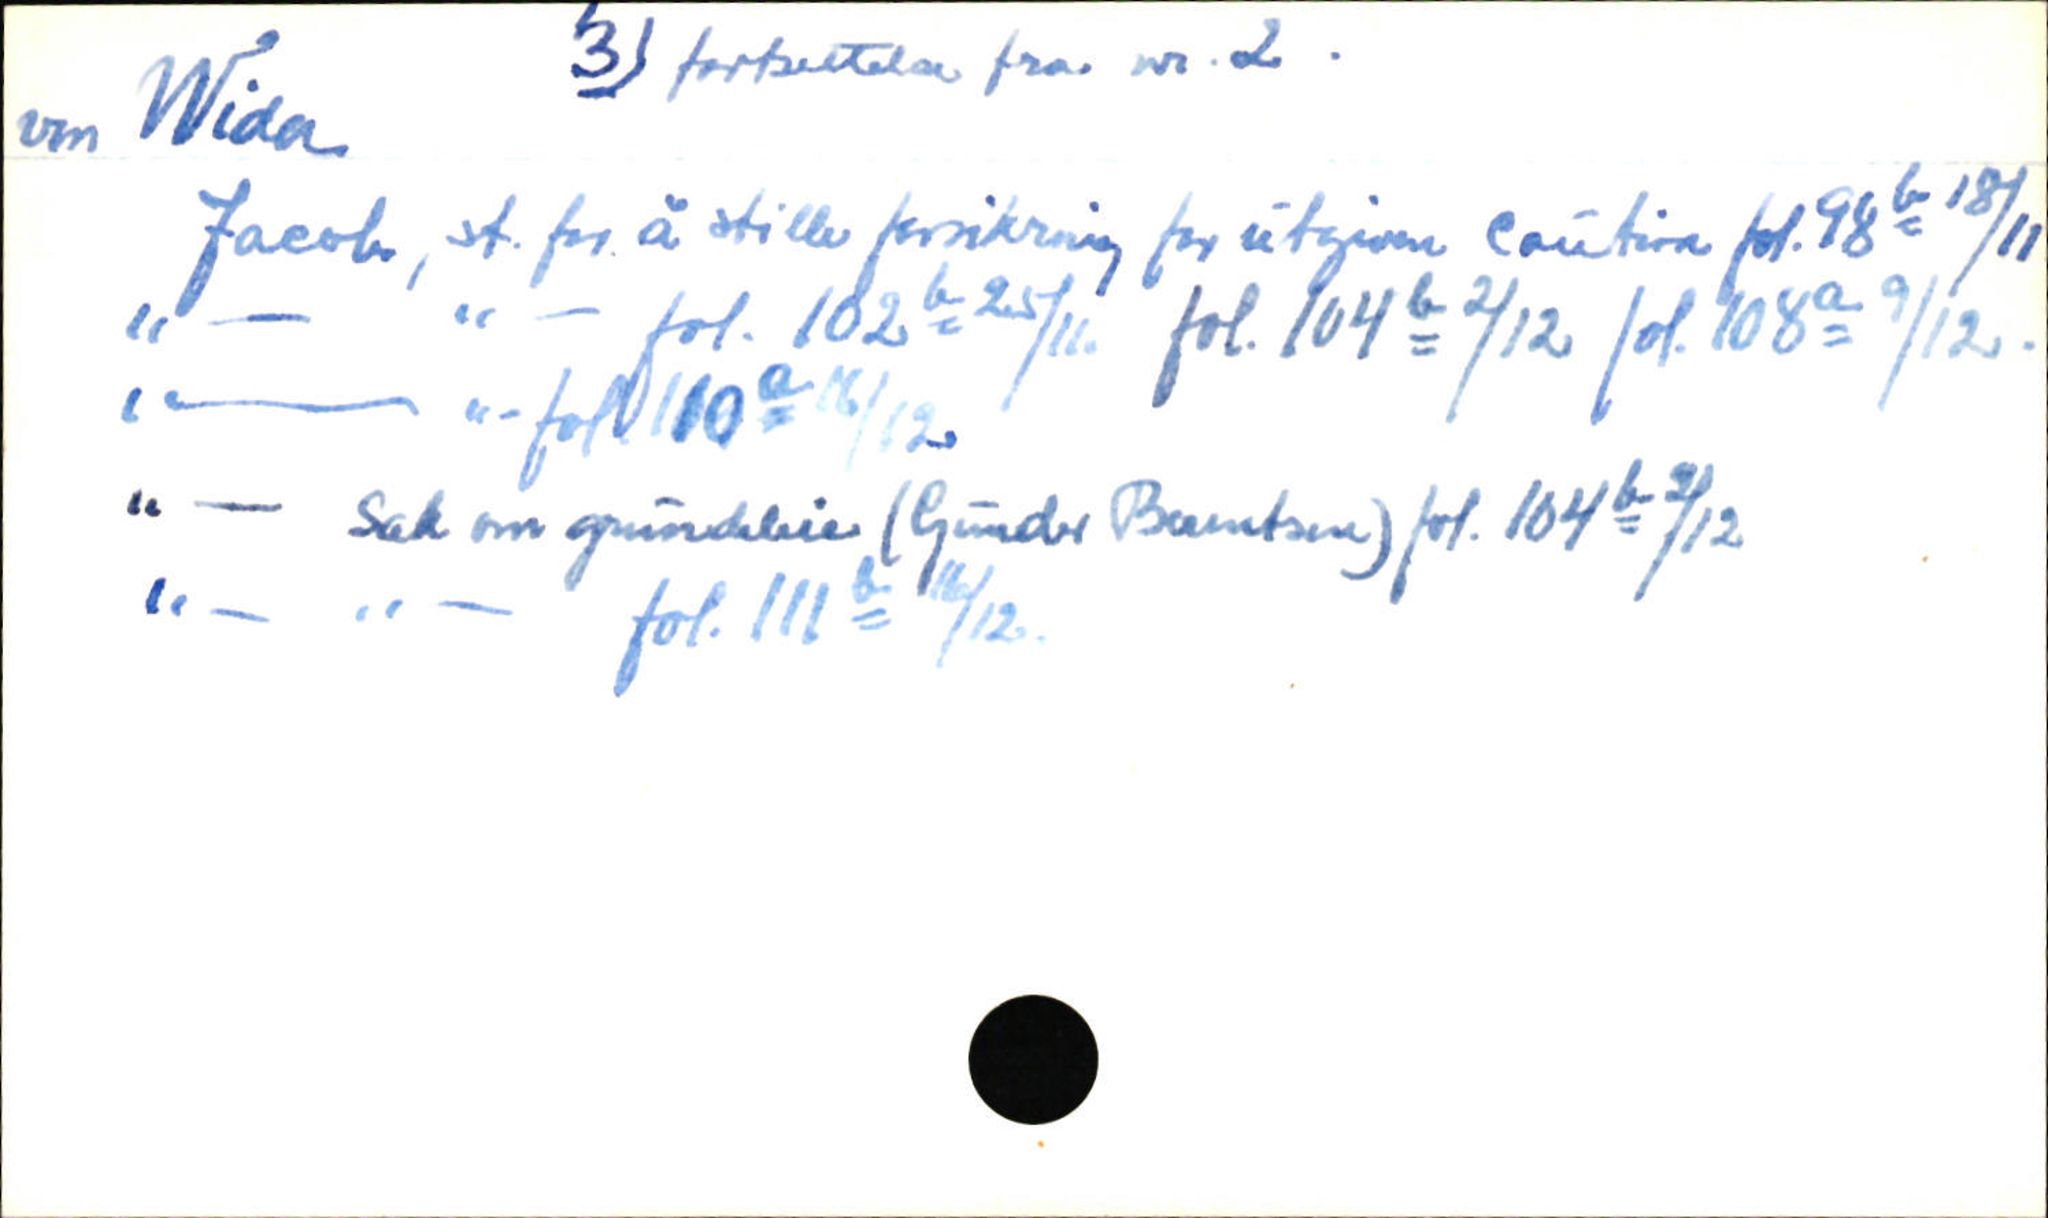 3) fortsettelse fra nr. 2.
von Wida
Jacob, st. for å stille forsikring for utgiven Caution fol. 98 b 18/11
" — " — fol. 102 b 25/11. fol. 104 b 2/12 fol. 108 a 9/12.
" — " - fol. 110 a 16/12
" — Sak om grundleie (Gunder Berntsen) fol. 104 b 2/12
" — " — fol. 111 b 16/12.